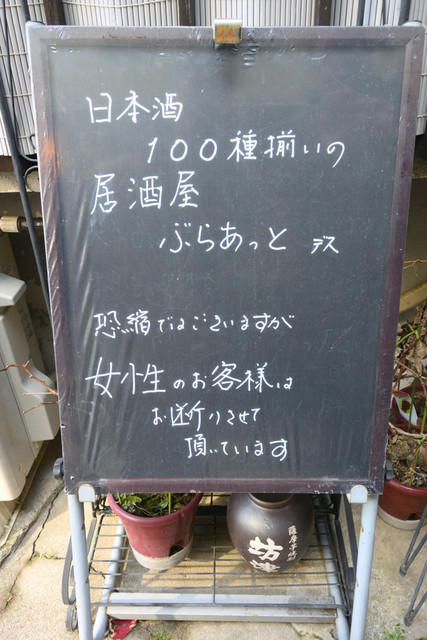 日本酒
100種揃いの
居酒屋
ぶらあっと デス
恐縮ではございますが
女性のお客様は
お断りさせて
頂いています
坊津